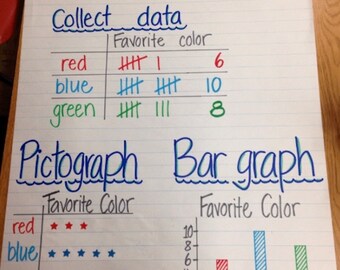 Collect data
Favorite color
red 6
blue 10
green 8
Pictograph
Favorite Color
red
blue
Bar graph
Favorite Color
10
8
6